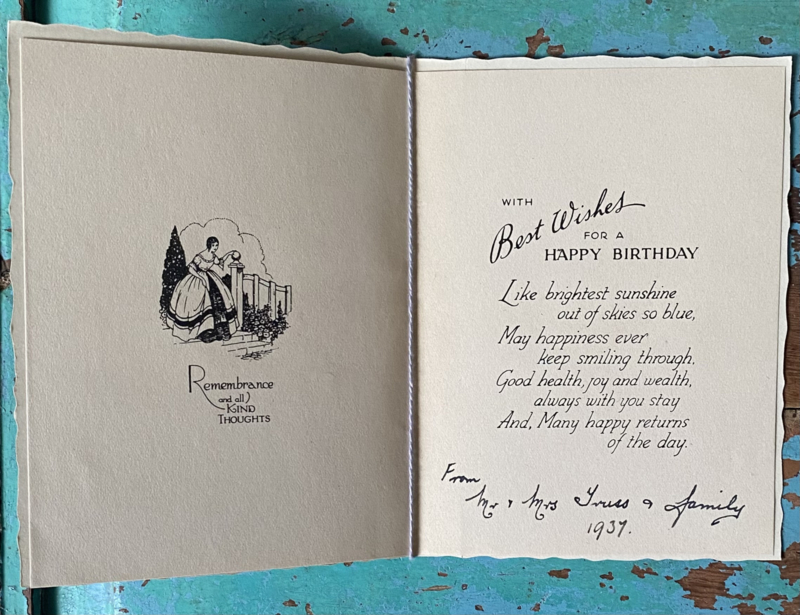 Remembrance
and all
KIND
THOUGHTS
WITH
Best Wishes
FOR A
HAPPY BIRTHDAY
Like brightest sunshine
out of skies so blue,
May happiness ever
keep smiling through.
Good health, joy and wealth,
always with you stay
And, Many happy returns
of the day.
From
Mr & Mrs Truss & family
1937.